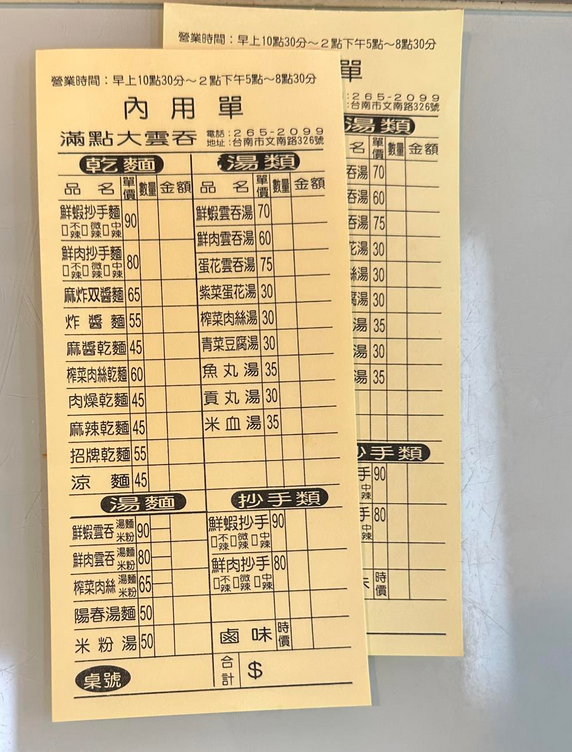 營業時間：早上10點30分～2點下午5點～8點30分
內用單
滿點大雲吞
電話：265-2099
地址：台南市文南路326號
乾麵
品名 單價 數量 金額
鮮蝦抄手麵 90
□不辣□微辣□中辣
鮮肉抄手麵 80
□不辣□微辣□中辣
麻炸双醬麵 65
炸醬麵 55
麻醬乾麵 45
榨菜肉絲乾麵 60
肉燥乾麵 45
麻辣乾麵 45
招牌乾麵 55
涼麵 45
湯麵
鮮蝦雲吞 湯麵 米粉 90
鮮肉雲吞 湯麵 米粉 80
榨菜肉絲 湯麵 米粉 65
陽春湯麵 50
米粉湯 50
桌號
湯類
品名 單價 數量 金額
鮮蝦雲吞湯 70
鮮肉雲吞湯 60
蛋花雲吞湯 75
紫菜蛋花湯 30
榨菜肉絲湯 30
青菜豆腐湯 30
魚丸湯 35
貢丸湯 30
米血湯 35
抄手類
鮮蝦抄手 90
□不辣□微辣□中辣
鮮肉抄手 80
□不辣□微辣□中辣
鹵味 時價
合計 $
營業時間：早上10點30分～2點下午5點～8點30分
單
265-2099
台南市文南路326號
湯類
名 單價 數量 金額
吞湯 70
吞湯 60
吞湯 75
花湯 30
絲湯 30
腐湯 30
湯 35
湯 30
湯 35
手類
手 90
中辣
手 80
中辣
味 時價